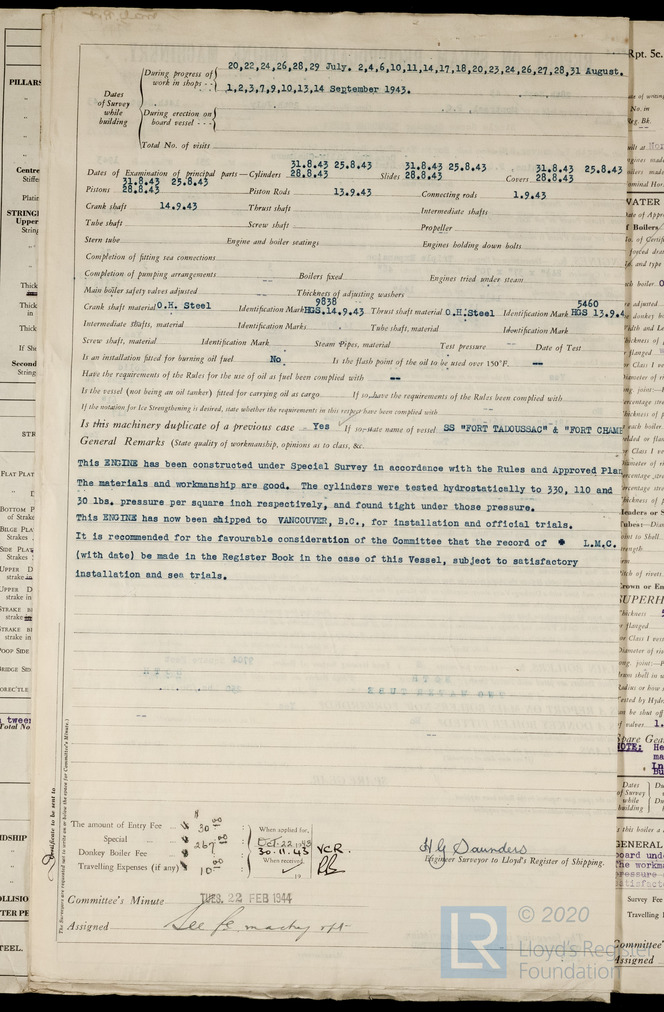 Dates of Survey while building
During progress of work in shops - - 20,22,24,26,28,29 July. 2,4,6,10,11,14,17,18,20,23,24,26,27,28,31 August.
1,2,3,7,9,10,13,14 September 1943.
During erection on board vessel - - -
Total No. of visits
Dates of Examination of principal parts—Cylinders 31.8.43 25.8.43 28.8.43 Slides 31.8.43 25.8.43 28.8.43 Covers 31.8.43 25.8.43 28.8.43
Pistons 31.8.43 25.8.43 28.8.43 Piston Rods 13.9.43 Connecting rods 1.9.43
Crank shaft 14.9.43 Thrust shaft Intermediate shafts
Tube shaft Screw shaft Propeller
Stern tube Engine and boiler seatings Engines holding down bolts
Completion of fitting sea connections
Completion of pumping arrangements Boilers fixed Engines tried under steam
Main boiler safety valves adjusted Thickness of adjusting washers
Crank shaft material O.H. Steel Identification Mark 9838 HGS.14.9.43 Thrust shaft material O.H.Steel Identification Mark 5460 HGS 13.9.4
Intermediate shafts, material Identification Marks Tube shaft, material Identification Mark
Screw shaft, material Identification Mark Steam Pipes, material Test pressure Date of Test
Is an installation fitted for burning oil fuel No. Is the flash point of the oil to be used over 150°F. --
Have the requirements of the Rules for the use of oil as fuel been complied with --
Is the vessel (not being an oil tanker) fitted for carrying oil as cargo If so, have the requirements of the Rules been complied with
If the notation for Ice Strengthening is desired, state whether the requirements in this respect have been complied with
Is this machinery duplicate of a previous case Yes If so, state name of vessel SS "FORT TADOUSSAC" & "FORT CHAM
General Remarks (State quality of workmanship, opinions as to class, &c.
This ENGINE has been constructed under Special Survey in accordance with the Rules and Approved Plan
The materials and workmanship are good. The cylinders were tested hydrostatically to 330, 110 and
30 lbs. pressure per square inch respectively, and found tight under those pressure.
This ENGINE has now been shipped to VANCOUVER, B.C., for installation and official trials.
It is recommended for the favourable consideration of the Committee that the record of L.M.C.
(with date) be made in the Register Book in the case of this Vessel, subject to satisfactory
installation and sea trials.
The amount of Entry Fee $ 30
Special 267
Donkey Boiler Fee
Travelling Expenses (if any) 10
When applied for,
Oct 22 1943
30.11.43 VCR.
When received,
19
H G Saunders
Engineer Surveyor to Lloyd's Register of Shipping.
Committee's Minute TUES. 22 FEB 1944
Assigned See
Certificate to be sent to
(The Surveyors are requested not to write on or below the space for Committee's Minute.)
Rpt. 5c.
PILLARS
STR
© 2020
LR
Lloyd's Register
Foundation